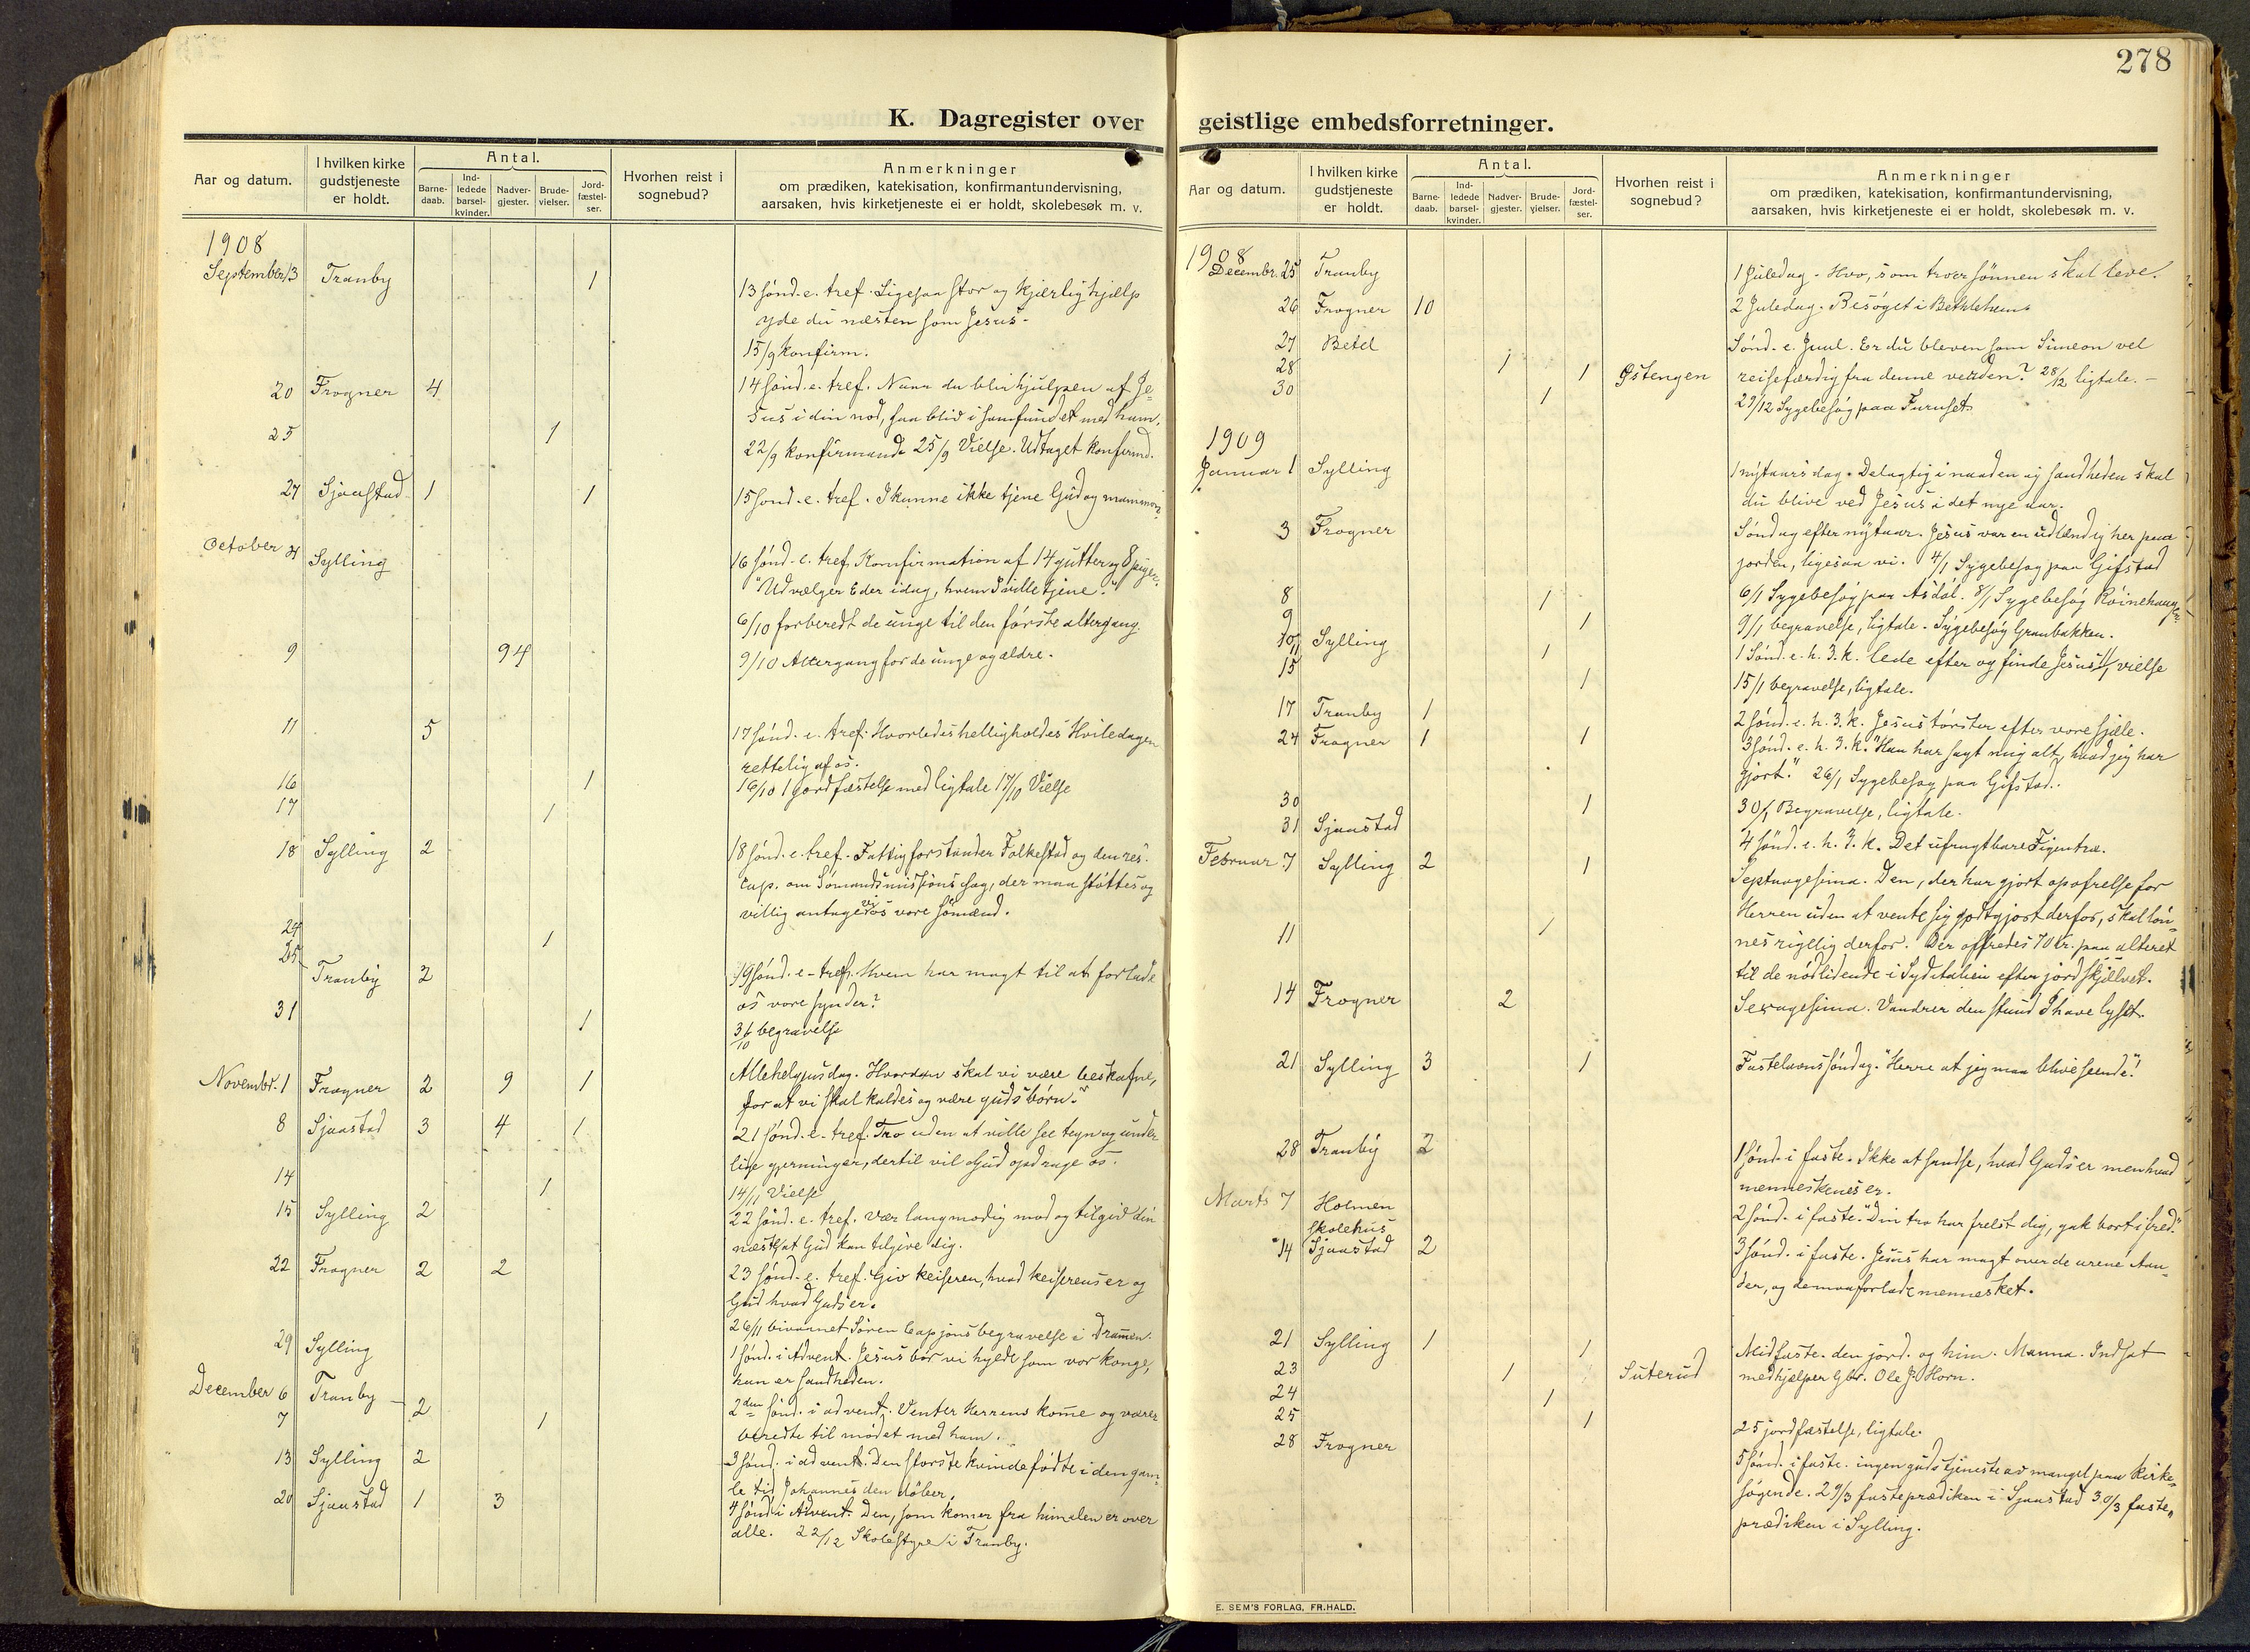 278
K. Dagregister over
Aar og datum. I hvilken kirke gudstjeneste er holdt. Antal. Barne-daab. Ind-ledede barsel-kvinder. Nadver-gjester. Brude-vielser. Jord-fæstel-ser. Hvorhen reist i sognebud? Anmerkninger
om prædiken, katekisation, konfirmantundervisning,
aarsaken, hvis kirketjeneste ei er holdt, skolebesøk m. v.
1908
September 13 Tranby 1 13 sønd. e. tref. Ligesaa stor og kjærlig hjælp
yde du næsten som Jesus.
15/9 konfirm.
20 Frogner 4 14 sønd. e. tref. Naar du blir hjulpen af Je-
sus i din nød, saa bliv i samfundet med ham.
25 1 22/9 konfirmand. 25/9 Vielse. Udtaget konfirmd.
27 Sjaastad 1 1 15 sønd. e. tref. I kunne ikke tjene Gud og mammon.
October 4 Sylling 16 sønd. e. tref. Konfirmation af 14 gutter og 8 piger.
"Udvælger Eder idag, hvem I ville tjene."
6/10 forberedt de unge til den første altergang.
9 94 9/10 Altergang for de unge og ældre.
11 5 17 sønd. e. tref. Hvorledes helligholdes Hviledagen
rettelig af os.
16 1 16/10 1 Jordfæstelse med ligtale 17/10 Vielse
17 1
18 Sylling 2 18 sønd. e. tref. Fattigforstander Folkestad og den res.
cap. om Sømandsmissions sag, der maa støttes og
villig antage vi os vore sømænd.
24 1
25 Tranby 2 19 sønd. e. tref. Hvem har magt til at forlade
os vore synder?
31 1 31/10 begravelse
Novembr. 1 Frogner 2 9 1 Allehelgensdag. Hvordan skal vi være beskafne,
for at vi skal kaldes og være guds børn?
8 Sjaastad 3 4 1 21 sønd. e. tref. Tro uden at ville see tegn og under-
lige gjerninger, dertil vil Gud opdrage os.
14 1 14/11 Vielse
15 Sylling 2 22 sønd. e. tref. Vær langmodig mod og tilgiv din
næste, at Gud kan tilgive dig.
22 Frogner 2 2 23 sønd. e. tref. Giv keiseren, hvad keiserens er og
Gud hvad Guds er.
26/11 bivaanet Søren begravelse i Drammen.
29 Sylling 1 sønd. i Advent. Jesus bør vi hylde som vor konge,
han er sandheden.
December 6 Tranby 2 2den sønd. i advent. Venter Herrens komme og værer
7 1 beredte til mødet med ham.
13 Sylling 2 3 sønd. i advent. Den største kvindefødte i den gam-
le tid Johannes den døber.
20 Sjaastad 1 3 4 sønd. i Advent. Den, som kommer fra himmelen er over
alle. 22/12 Skolestyre i Tranby.
geistlige embedsforretninger.
Aar og datum. I hvilken kirke gudstjeneste er holdt. Antal. Barne-daab. Ind-ledede barsel-kvinder. Nadver-gjester. Brude-vielser. Jord-fæstel-ser. Hvorhen reist i sognebud? Anmerkninger
om prædiken, katekisation, konfirmantundervisning,
aarsaken, hvis kirketjeneste ei er holdt, skolebesøk m. v.
1908
Decembr. 25 Tranby 1 Juledag. Hvo, som troer sønnen skal leve.
26 Frogner 10 2 Juledag. Besøget i Bethlehem.
27 Betel Sønd. e. Juul. Er du bleven som Simeon vel
28 1 1 Østengen reisefærdig fra denne verden? 28/12 ligtale.
30 1 29/12 Sygebesøg paa Furuset
1909
Januar 1 Sylling 1 nytaarsdag. Delagtig i naaden og sandheden skal
du blive ved Jesus i det nye aar.
3 Frogner Søndag efter nytaar. Jesus var en udlændig her paa
jorden, ligesaa vi. 4/1 Sygebesøg paa Gifstad
8 1 6/1 Sygebesøg paa Åsdøl. 8/1 Sygebesøg
9 1 9/1 begravelse, ligtale. Sygebesøg Granbakken.
10 Sylling 1 Sønd. e. h. 3. k. lede efter og finde Jesus. 11/1 vielse
11 1
15 1 15/1 begravelse, ligtale.
17 Tranby 1 2 sønd. e. h. 3. k. Jesus tørster efter vore sjæle.
24 Frogner 1 1 3 sønd. e. h. 3. k. "Han har sagt mig alt, hvad jeg har
gjort." 26/1 Sygebesøg paa Gifstad.
30 1 30/1 Begravelse, ligtale.
31 Sjaastad 4 sønd. e. h. 3. k. Det ufrugtbare Figentræ.
Februar 7 Sylling 2 1 Septuagesima. Den, der har gjort opofrelse for
Herren uden at vente sig godtgjort derfor, skal løn-
11 1 nes rigelig derfor. Der offredes 70 kr. paa alteret
til de nødlidende i Syditalien efter jordskjælvet.
14 Frogner 2 Sexagesima. Vandrer den stund I have lyset.
21 Sylling 3 1 Fastelavnssøndag. "Herre at jeg maa blive seende."
28 Tranby 2 1 sønd. i faste. Ikke at sandse, hvad Guds er men hvad
menneskenes er.
Marts 7 Holmen Skolehus 2 sønd. i faste. "Din tro har frelst dig, gak bort i fred."
14 Sjaastad 2 3 sønd. i faste. Jesus har magt over de urene Aan-
der, og de maa forlade mennesket.
21 Sylling 1 1 Midfaste. den jord. og him. Manna. Indsat
23 1 Suterud medhjælper Gbr. Ole J. Horn.
24 1
25 1 25 jordfæstelse, ligtale.
28 Frogner 5 sønd. i faste. ingen gudstjeneste av mangel paa kirke-
søgende. 29/3 fasteprædiken i Sjaastad 30/3 faste-
prædiken i Sylling.
E. SEM'S FORLAG, FR.HALD.